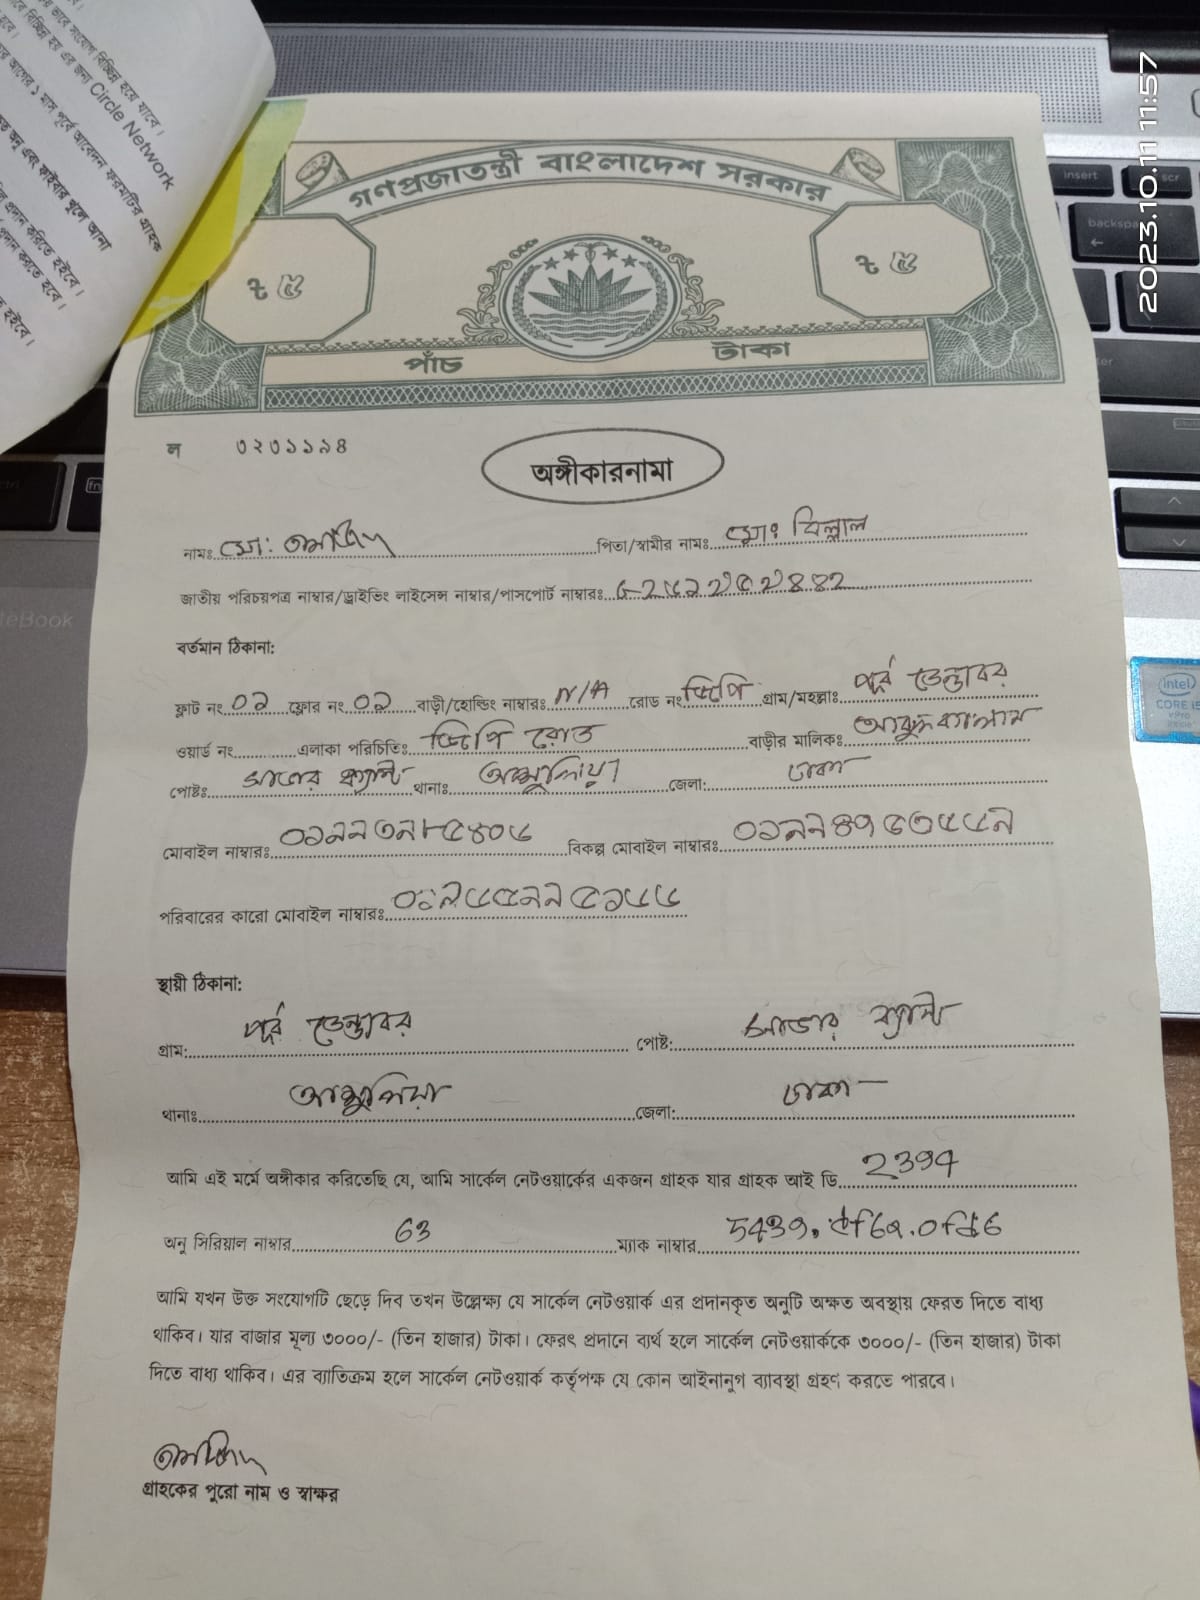 ভাবে সংযোগ বিচ্ছিন্ন হয়ে যাবে।
বিচ্ছিন্ন হয় এর জন্য Circle Network
আগের ১ মাস পূর্বে আবেদন ফরমটির গ্রাহক
অনু এবং ফাইবার খুলে আনা
প্রদান করিতে হইবে।
প্রদান করতে হবে।
হইবে।
2023.10.11 11:57
insert
backspa
fn
teBook
intel
CORE i5
vPro
গণপ্রজাতন্ত্রী বাংলাদেশ সরকার
৳ ৫
৳ ৫
পাঁচ টাকা
ল ৩২৩১১৯৪
অঙ্গীকারনামা
নামঃ মো: পিতা/স্বামীর নামঃ মোঃ বিল্লাল
জাতীয় পরিচয়পত্র নাম্বার/ড্রাইভিং লাইসেন্স নাম্বার/পাসপোর্ট নাম্বারঃ
বর্তমান ঠিকানা:
ফ্লাট নং ০১ ফ্লোর নং ০১ বাড়ী/হোল্ডিং নাম্বারঃ N/A রোড নং জিপি গ্রাম/মহল্লাঃ পূর্ব ডেন্ডাবর
ওয়ার্ড নং এলাকা পরিচিতিঃ জিপি রোড বাড়ীর মালিকঃ আবুল কালাম
পোষ্টঃ সাভার ক্যান্ট থানাঃ আশুলিয়া জেলা: ঢাকা
মোবাইল নাম্বারঃ বিকল্প মোবাইল নাম্বারঃ
পরিবারের কারো মোবাইল নাম্বারঃ
স্থায়ী ঠিকানা:
গ্রাম: পূর্ব ডেন্ডাবর পোষ্ট: সাভার ক্যান্ট
থানাঃ আশুলিয়া জেলা: ঢাকা
আমি এই মর্মে অঙ্গীকার করিতেছি যে, আমি সার্কেল নেটওয়ার্কের একজন গ্রাহক যার গ্রাহক আই ডি 2397
অনু সিরিয়াল নাম্বার 63 ম্যাক নাম্বার
আমি যখন উক্ত সংযোগটি ছেড়ে দিব তখন উল্লেক্ষ্য যে সার্কেল নেটওয়ার্ক এর প্রদানকৃত অনুটি অক্ষত অবস্থায় ফেরত দিতে বাধ্য
থাকিব। যার বাজার মূল্য ৩০০০/- (তিন হাজার) টাকা। ফেরৎ প্রদানে ব্যর্থ হলে সার্কেল নেটওয়ার্ককে ৩০০০/- (তিন হাজার) টাকা
দিতে বাধ্য থাকিব। এর ব্যাতিক্রম হলে সার্কেল নেটওয়ার্ক কর্তৃপক্ষ যে কোন আইনানুগ ব্যাবস্থা গ্রহণ করতে পারবে।
গ্রাহকের পুরো নাম ও স্বাক্ষর